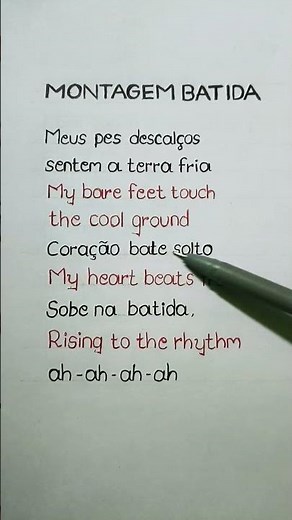 MONTAGEM BATIDA
Meus pes descalços
sentem a terra fria
My bare feet touch
the cool ground
Coração bate solto
My heart beats
Sobe na batida,
Rising to the rhythm
ah-ah-ah-ah